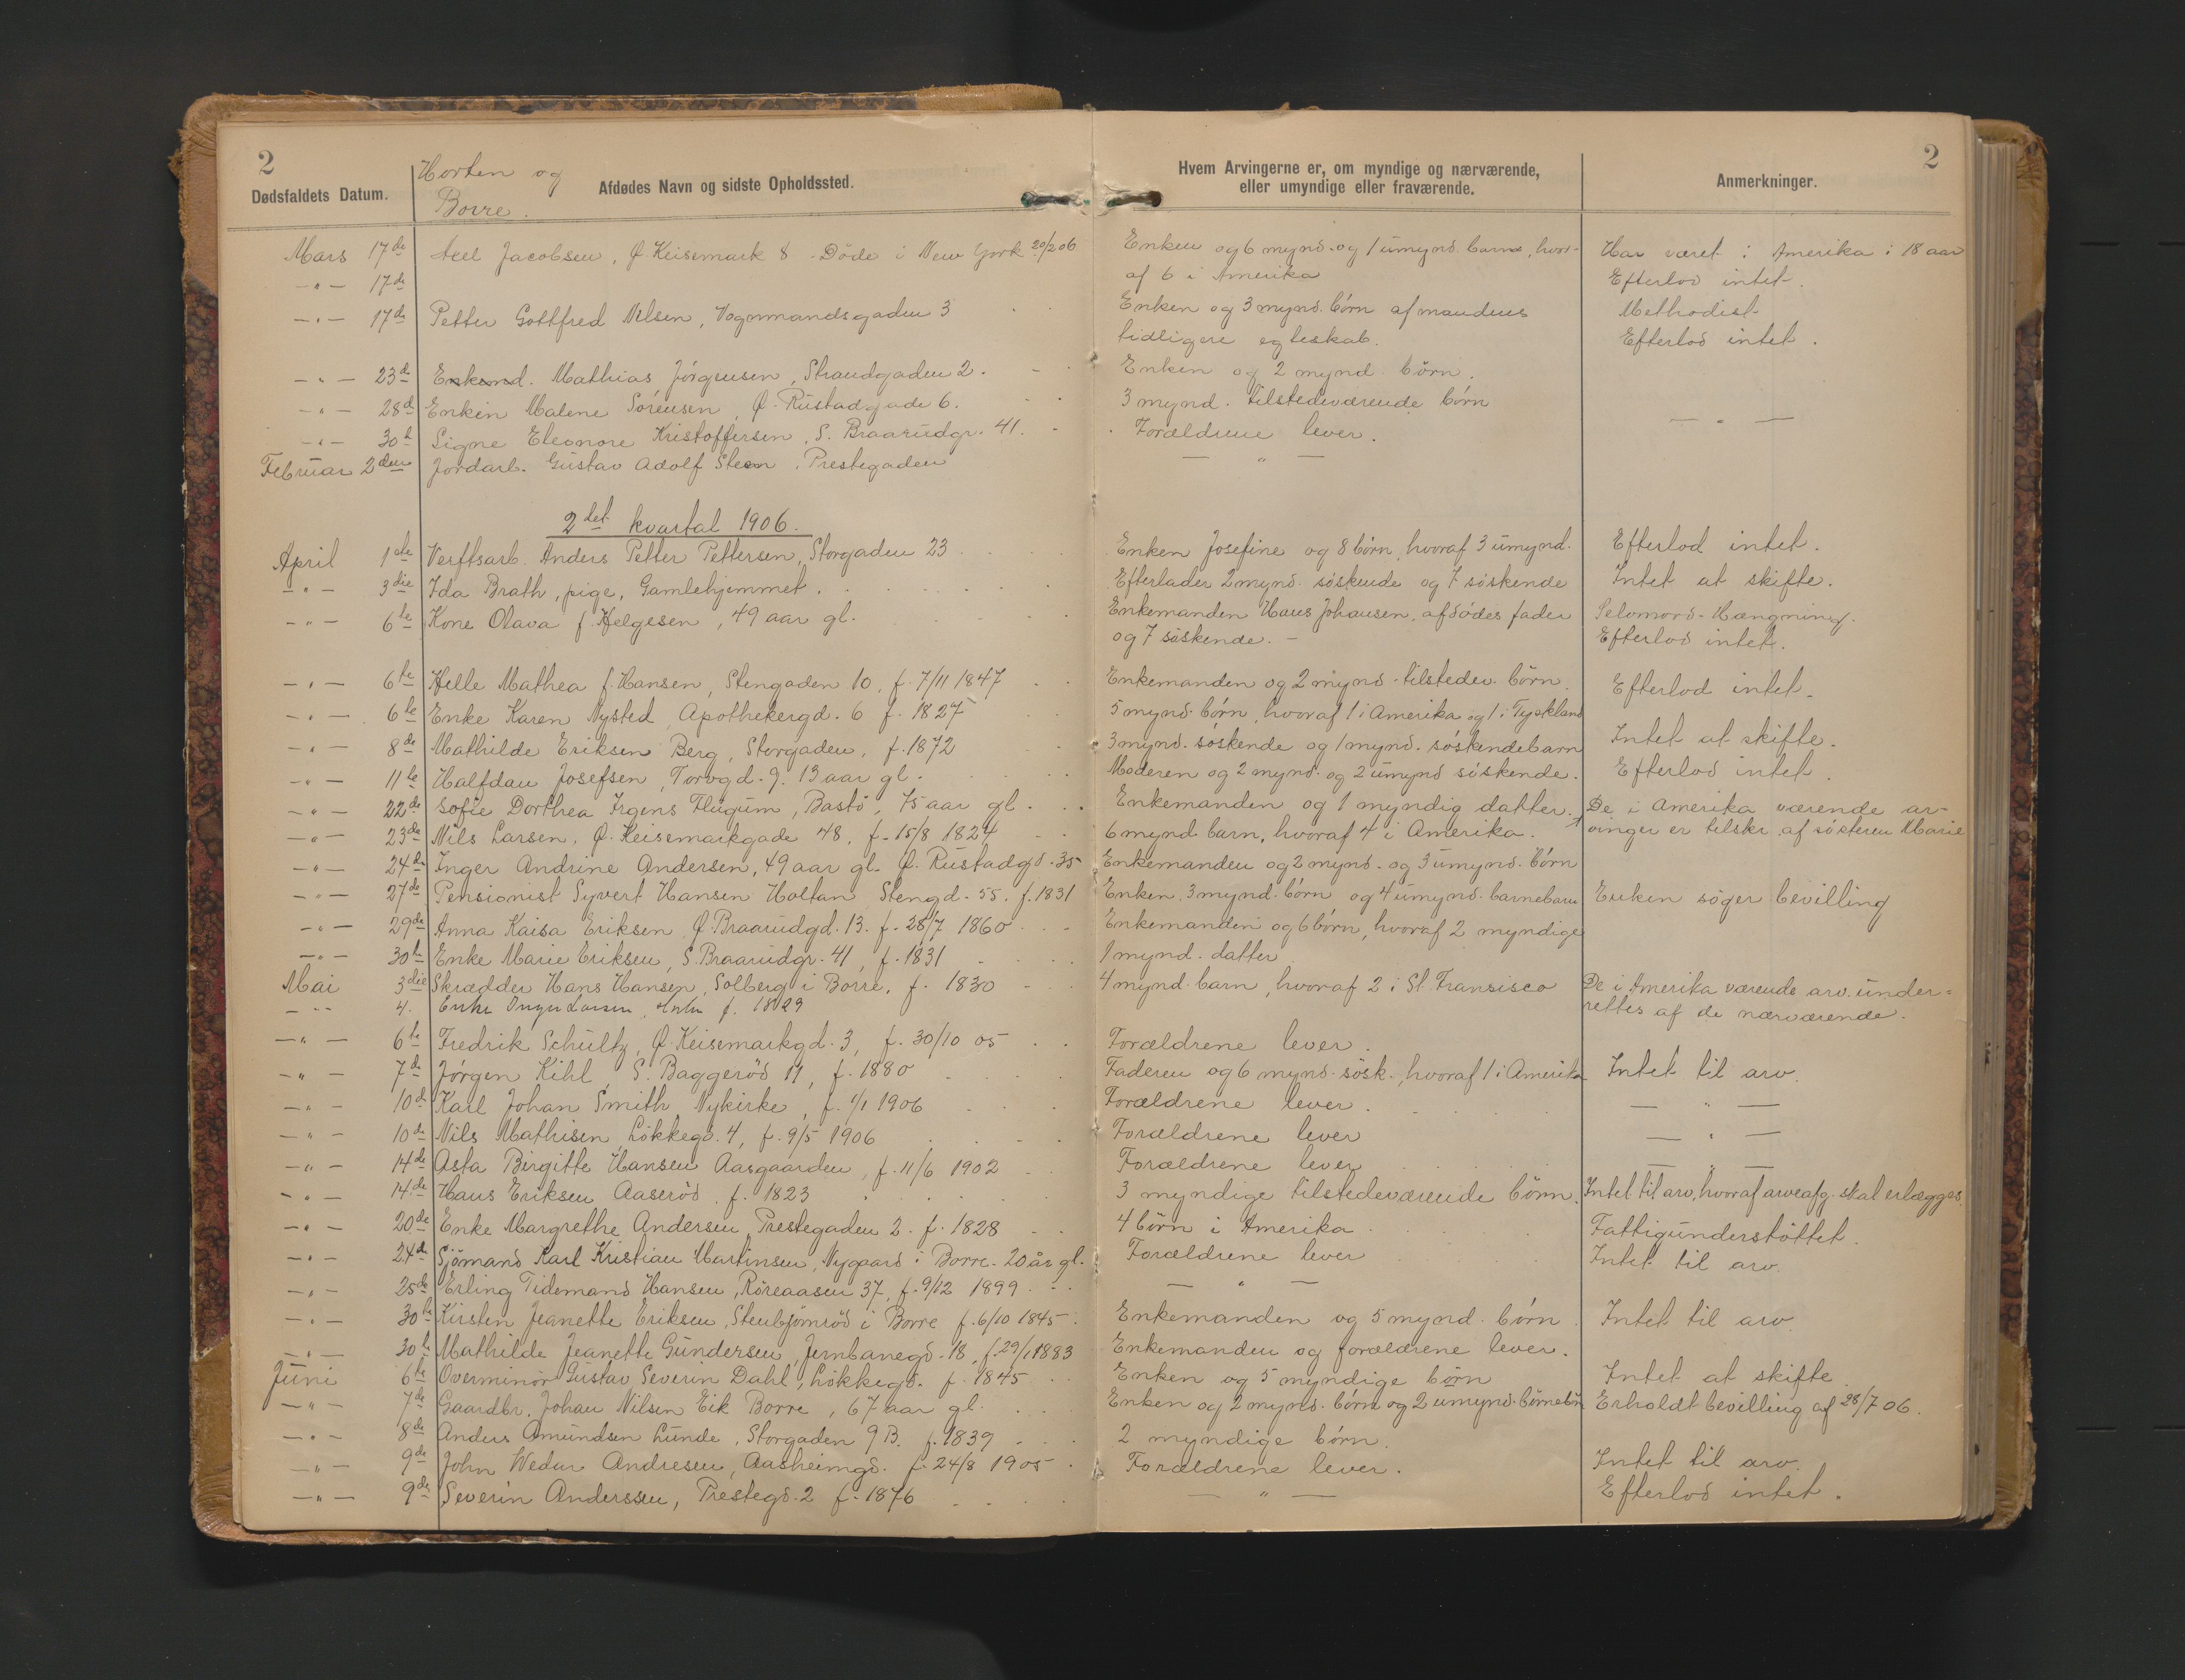 2
2
Horten og
Borre.
Dødsfaldets Datum.
Afdødes Navn og sidste Opholdssted.
Hvem Arvingerne er, om myndige og nærværende,
eller umyndige eller fraværende.
Anmerkninger.
Mars 17de Axel Jacobsen, Ø. Keisemark 8. Døde i New York 20/2 06 Enken og 6 mynd. og 1 umynd barn, hvor- Har været i Amerika i 18 aar
—"— 17de af 6 i Amerika Efterlod intet.
—"— 17de Petter Gottfred Nilsen, Vognmandsgaden 3 Enken og 3 mynd. børn af mandens Methodist
tidligere egteskab. Efterlod intet.
—"— 23de Enkemd. Mathias Jørgensen, Strandgaden 2. Enken og 2 mynd. børn.
—"— 28de Enken Malene Sørensen, Ø. Rustadgade 6. 3 mynd. tilstedeværende børn —"—
—"— 30te Signe Eleonore Kristoffersen, S. Braarudgr. 41. Forældrene lever.
Februar 2den Jordarb. Gustav Adolf Steen, Prestegaden —"—
2det kvartal 1906.
April 1ste Verftsarb. Anders Petter Pettersen, Storgaden 23 Enken Josefine og 8 børn, hvoraf 3 umynd. Efterlod intet.
—"— 3die Ida Brath, pige, Gamlehjemmet. Efterlader 2 mynd. søskende og 7 søskende Intet at skifte.
—"— 6te Kone Olava f. Helgesen, 49 aar gl. Enkemanden Hans Johansen, afdødes fader Selvmord-Hængning.
og 7 søskende. — Efterlod intet.
—"— 6te Helle Mathea f. Hansen, Stengaden 10, f. 7/11 1847 Enkemanden og 2 mynd. tilstedev. børn. Efterlod intet.
—"— 6te Enke Karen Nysted, Apothekergd. 6 f. 1827 5 mynd. børn, hvoraf 1 i Amerika og 1 i Tyskland
—"— 8de Mathilde Eriksen Berg, Storgaden, f. 1872 3 mynd. søskende og 1 mynd. søskendebarn Intet at skifte.
—"— 11te Halfdan Josefsen, Torvgd. 9. 13 aar gl. Moderen og 2 mynd. og 2 umynd søskende. Efterlod intet.
—"— 22de Sofie Dorthea Irgens Flugum, Bastø, 75 aar gl. Enkemanden og 1 myndig datter. De i Amerika værende ar-
—"— 23de Nils Larsen, Ø. Keisemarkgade 48, f. 15/8 1824 6 mynd. barn, hvoraf 4 i Amerika. vinger er tilskr. af søsteren Marie
—"— 24de Inger Andrine Andersen, 49 aar gl. Ø. Rustadgd. 35 Enkemanden og 2 mynd. og 3 umynd. børn
—"— 27de Pensionist Syvert Hansen Holtan, Stengd. 55. f. 1831 Enken, 3 mynd. børn og 4 umynd. barnebarn Enken søger bevilling
—"— 29de Anna Kaisa Eriksen, Ø. Braarudgd. 13. f. 28/7 1860 Enkemanden og 6 børn, hvoraf 2 myndige
—"— 30te Enke Marie Eriksen, S. Braarudgr. 41, f. 1831 1 mynd. datter
Mai 3die Skrædder Hans Hansen, Solberg i Borre, f. 1830 4 mynd. barn, hvoraf 2 i St. Fransisco De i Amerika værende arv. under-
—"— 4. Enke Inger Larsen, f. 1829 rettes af de nærværende.
—"— 6te Fredrik Schultz, Ø. Keisemarkgd. 3, f. 30/10 05 Forældrene lever.
—"— 7de Jørgen Kihl, S. Baggerød 11, f. 1880 Faderen og 6 mynd. søsk., hvoraf 1 i Amerika Intet til arv.
—"— 10de Karl Johan Smith, Nykirke, f. 1/1 1906 Forældrene lever. —"—
—"— 10de Nils Mathisen, Løkkegd. 4, f. 9/5 1906 Forældrene lever —"—
—"— 14de Asta Birgitte Hansen Aasgaarden, f. 11/6 1902 Forældrene lever —"—
—"— 14de Hans Eriksen Aaserød. f. 1823 3 myndige tilstedeværende børn. Intet til arv, hvoraf arveafg. skal erlægges.
—"— 20de Enke Margrethe Andersen, Prestegaden 2. f. 1828 4 børn i Amerika Fattigunderstøttet.
—"— 24de Sjømand Karl Kristian Martinsen, Nygaard i Borre. 20 år gl. Forældrene lever Intet til arv.
—"— 25de Erling Tidemand Hansen, Røreaasen 37, f. 9/12 1899 —"—
—"— 30te Kirsten Jeanette Eriksen, Stenbjørnrød i Borre f. 6/10 1845 Enkemanden og 5 mynd. børn. Intet til arv.
—"— 30te Mathilde Jeanette Gundersen, Jernbanegd. 18, f. 29/1 1883 Enkemanden og forældrene lever.
Juni 6te Overminør Gustav Severin Dahl, Løkkegd. f. 1845 Enken og 5 myndige børn Intet at skifte
—"— 7de Gaardbr. Johan Nilsen Eik Borre, 67 aar gl. Enken og 2 mynd. børn og 2 umynd. børnebørn Erholdt bevilling af 28/7 06.
—"— 8de Anders Amundsen Lunde, Storgaden 9 B. f. 1839 2 myndige børn.
—"— 9de John Wedar Andresen, Aasheimgd. f. 24/8 1905 Forældrene lever. Intet til arv.
—"— 9de Severin Anderssen, Prestegd. 2 f. 1876 —"— Efterlod intet.